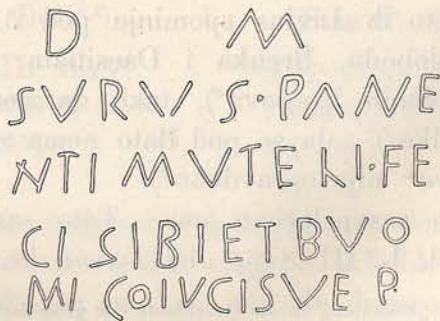 D M
SVRVI S·PANE
NTI MVTEKI·FE
CI SIBI ET BVO
MI COIVCISVE P.